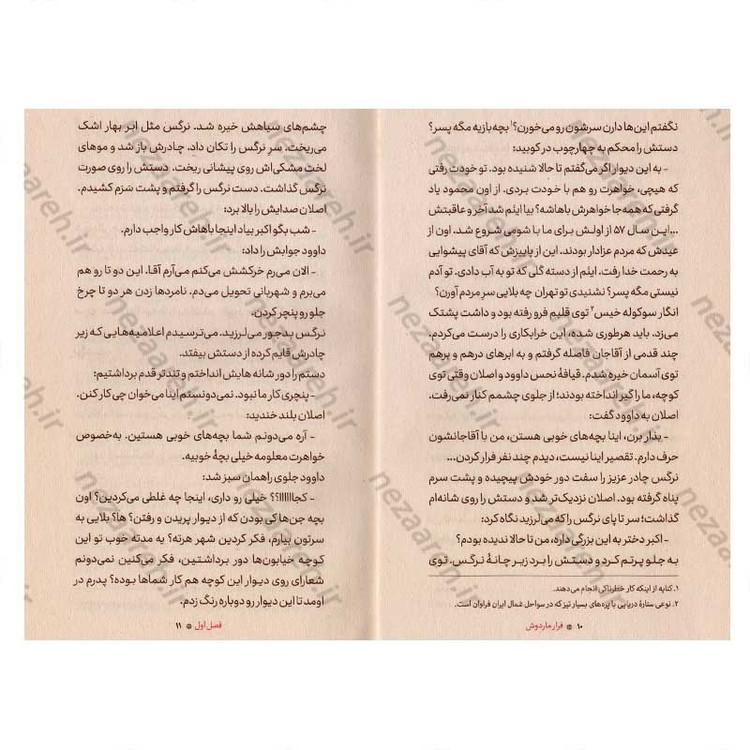 نگفتم این‌ها دارن سرشون رو می‌خورن؟۱ بچه‌بازیه مگه پسر؟
دستش را محکم به چهارچوب در کوبید:
- به این دیوار اگر می‌گفتم تا حالا شنیده بود. تو خودت رفتی
که هیچی، خواهرت رو هم با خودت بردی. از اون محمود یاد
گرفتی که همه‌جا خواهرش باهاشه؟ بیا اینم شد آخر و عاقبتش
...این سال ۵۷ از اولش برای ما با شومی شروع شد. اون از
عیدش که مردم عزادار بودند. این از پاییزش که آقای پیشوایی
به رحمت خدا رفت. اینم از دسته گلی که تو به آب دادی. تو آدم
نیستی مگه پسر؟ نشنیدی تو تهران چه بلایی سرِ مردم آورن؟
انگار سوکوله خیس۲ توی قلبم فرو رفته بود و داشت پشتک
می‌زد. باید هرطوری شده، این خرابکاری را درست می‌کردم.
چند قدمی از آقاجان فاصله گرفتم و به ابرهای درهم و برهم
توی آسمان خیره شدم. قیافهٔ نحس داوود و اصلان وقتی توی
کوچه، ما را گیر انداخته بودند؛ از جلوی چشمم کنار نمی‌رفت.
اصلان به داوود گفت:
- بذار برن، اینا بچه‌های خوبی هستن، من با آقاجانشون
حرف دارم. تقصیر اینا نیست، دیدم چند نفر فرار کردن...
نرگس چادر عزیز را سفت دور خودش پیچیده و پشت سرم
پناه گرفته بود. اصلان نزدیک‌تر شد و دستش را روی شانه‌ام
گذاشت؛ سر تا پای نرگس را که می‌لرزید نگاه کرد:
- اکبر دختر به این بزرگی داره، من تا حالا ندیده بودم؟
به جلو پرتم کرد و دستش را برد زیر چانهٔ نرگس. توی
۱. کنایه از اینکه کار خطرناکی انجام می‌دهند.
۲. نوعی ستارهٔ دریایی با پره‌های بسیار تیز که در سواحل شمال ایران فراوان است.
۱۰ فرار ماردوش
چشم‌های سیاهش خیره شد. نرگس مثل ابر بهار اشک
می‌ریخت. سرِ نرگس را تکان داد. چادرش باز شد و موهای
لخت مشکی‌اش روی پیشانی ریخت. دستش را روی صورت
نرگس گذاشت. دست نرگس را گرفتم و پشت سَرَم کشیدم.
اصلان صدایش را بالا برد:
- شب بگو اکبر بیاد اینجا باهاش کار واجب دارم.
داوود جوابش را داد:
- الان می‌رم خرکشش می‌کنم می‌آرم آقا. این دو تا رو هم
می‌برم و شهربانی تحویل می‌دم. نامردها زدن هر دو تا چرخ
جلو رو پنچر کردن.
نرگس بدجور می‌لرزید. می‌ترسیدم اعلامیه‌هایی که زیر
چادرش قایم کرده از دستش بیفتد.
دستم را دور شانه هایش انداختم و تندتر قدم برداشتیم:
- پنچری کار ما نبود. نمی‌دونستم اینا می‌خوان چی کار کنن.
اصلان بلند خندید:
- آره می‌دونم شما بچه‌های خوبی هستین. به‌خصوص
خواهرت معلومه خیلی بچهٔ خوبیه.
داوود جلوی راهمان سبز شد:
- کجااااااا؟؟ خیلی رو داری، اینجا چه غلطی می‌کردین؟ اون
بچه جن‌ها کی بودن که از دیوار پریدن و رفتن؟ ها؟ بلایی به
سرتون بیارم، فکر کردین شهر هرته؟ یه مدته خوب تو این
کوچه خیابون‌ها دور برداشتین، فکر می‌کنین نمی‌دونم
شعارای روی دیوار این کوچه هم کار شماها بوده؟ پدرم در
اومد تا این دیوار رو دوباره رنگ زدم.
فصل اول ۱۱
nezaareh.ir